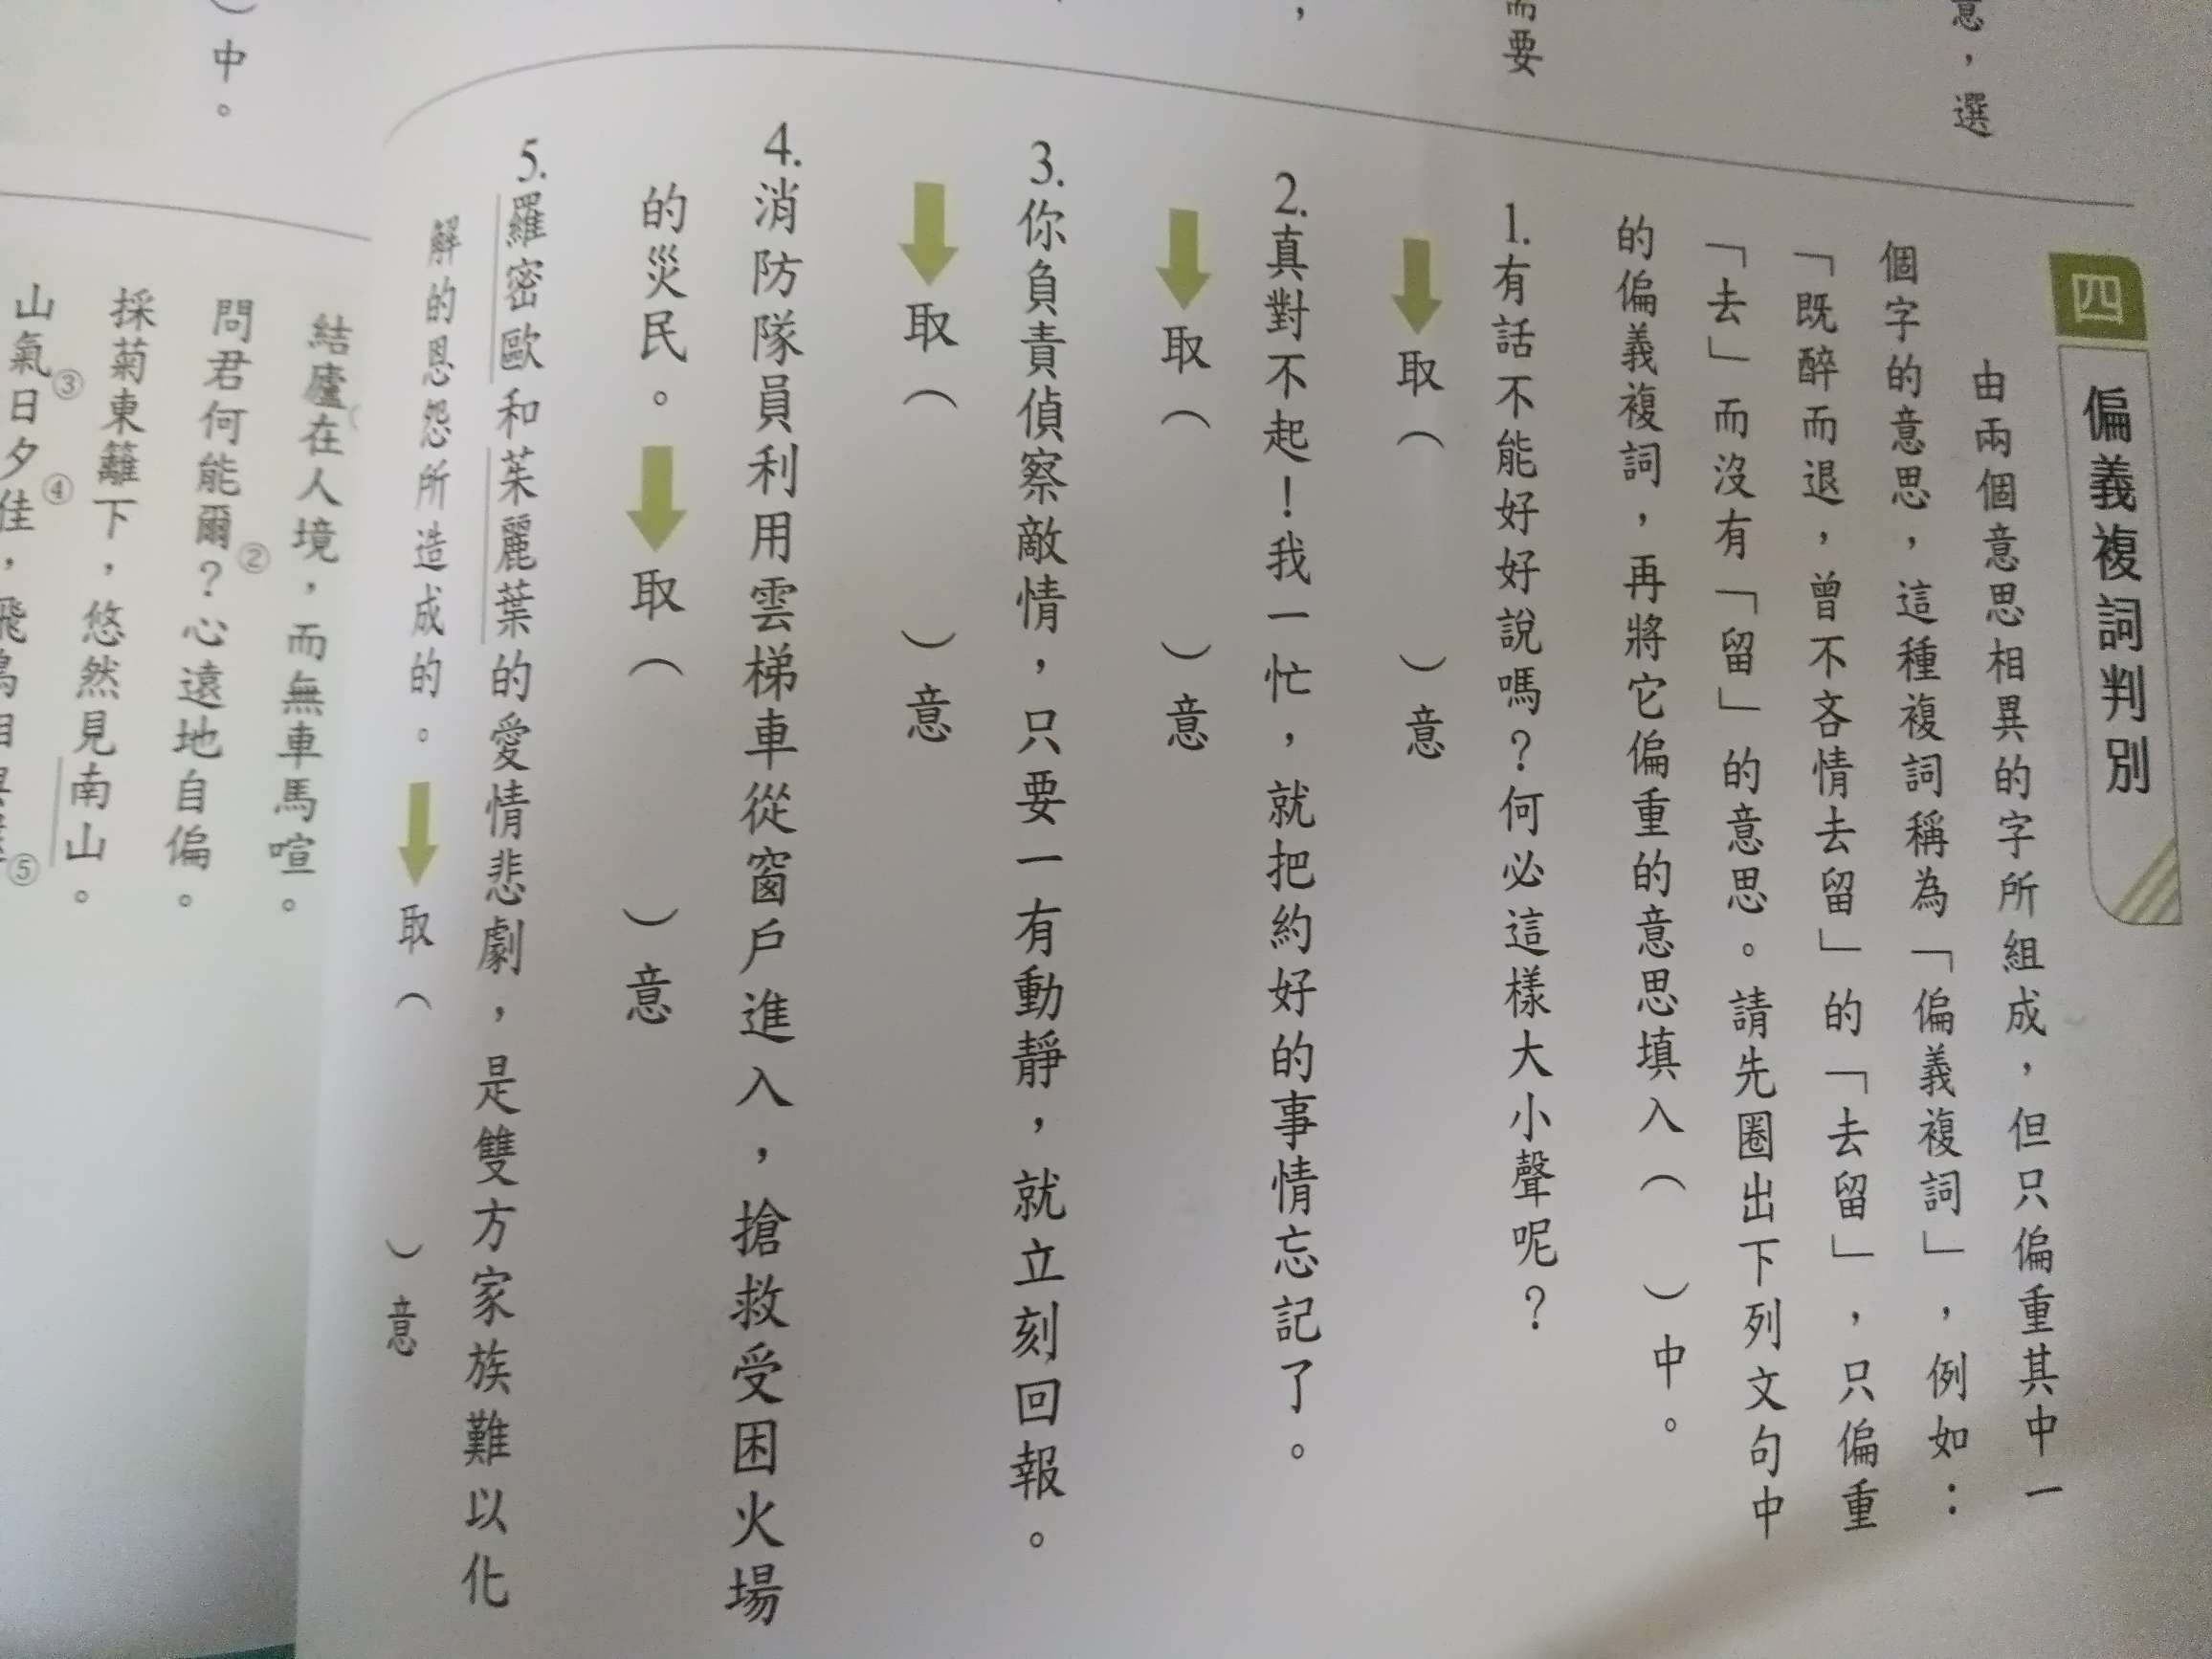 意，選
而要
，
四 偏義複詞判別
由兩個意思相異的字所組成，但只偏重其中一
個字的意思，這種複詞稱為「偏義複詞」，例如：
「既醉而退，曾不吝情去留」的「去留」，只偏重
「去」而沒有「留」的意思。請先圈出下列文句中
的偏義複詞，再將它偏重的意思填入（ ）中。
1.有話不能好好說嗎？何必這樣大小聲呢？
取（ ）意
2.真對不起！我一忙，就把約好的事情忘記了。
取（ ）意
3.你負責偵察敵情，只要一有動靜，就立刻回報。
取（ ）意
4.消防隊員利用雲梯車從窗戶進入，搶救受困火場
的災民。 取（ ）意
5.羅密歐和茱麗葉的愛情悲劇，是雙方家族難以化
解的恩怨所造成的。 取（ ）意
）中。
結廬在人境，而無車馬喧。
問君何能爾②？心遠地自偏。
採菊東籬下，悠然見南山。
山氣③日夕④佳，飛鳥相與還⑤